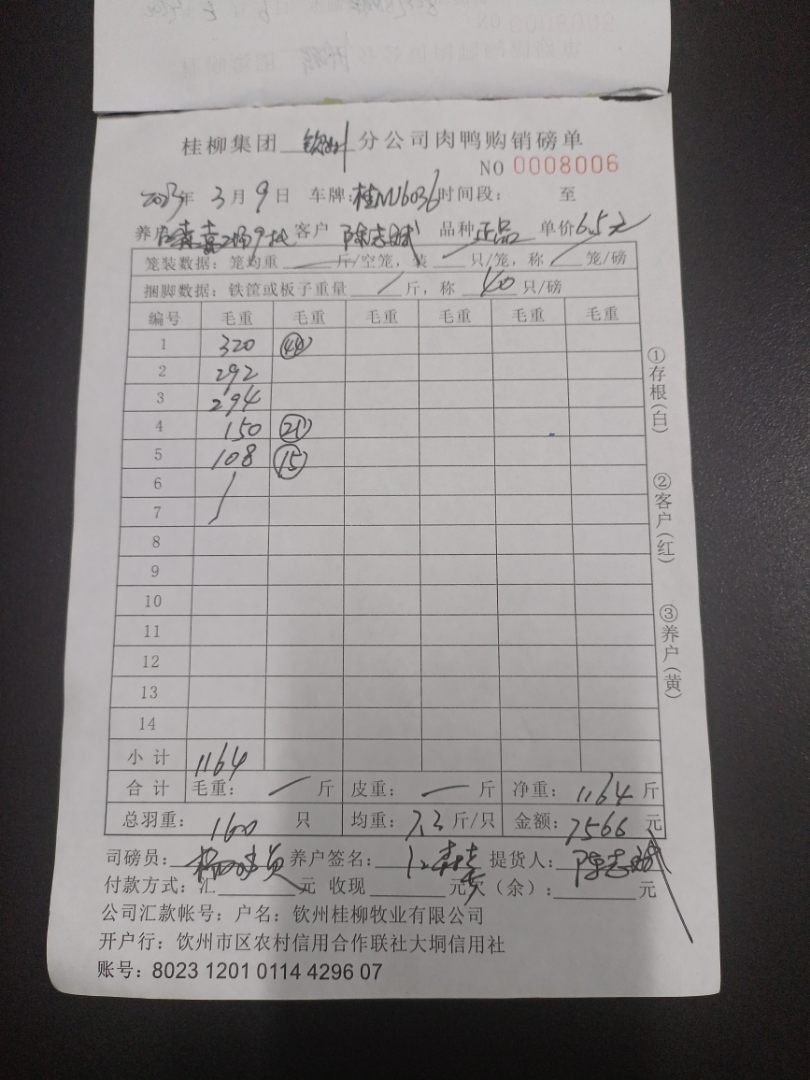 桂柳集团 钦州 分公司肉鸭购销磅单
NO 0008006
2023年 3月 9日 车牌:桂N16036 时间段: 至
养户 场9栋 客户 陈志斌 品种 正品 单价 6.5元
笼装数据:笼均重 / 斤/空笼,装 / 只/笼,称 / 笼/磅
捆脚数据:铁筐或板子重量 / 斤,称 40 只/磅
编号 毛重 毛重 毛重 毛重 毛重 毛重
1 320 44
2 292
3 294
4 150 21
5 108 15
6
7
8
9
10
11
12
13
14
小计 1164
合计 毛重: 一 斤 皮重: 一 斤 净重: 1164 斤
总羽重: 160 只 均重: 7.3 斤/只 金额: 7566 元
司磅员: 养户签名: 提货人: 陈志斌
付款方式:汇 元 收现 元欠(余): 元
公司汇款帐号:户名:钦州桂柳牧业有限公司
开户行:钦州市区农村信用合作联社大垌信用社
账号:8023 1201 0114 4296 07
①存根(白)
②客户(红)
③养户(黄)